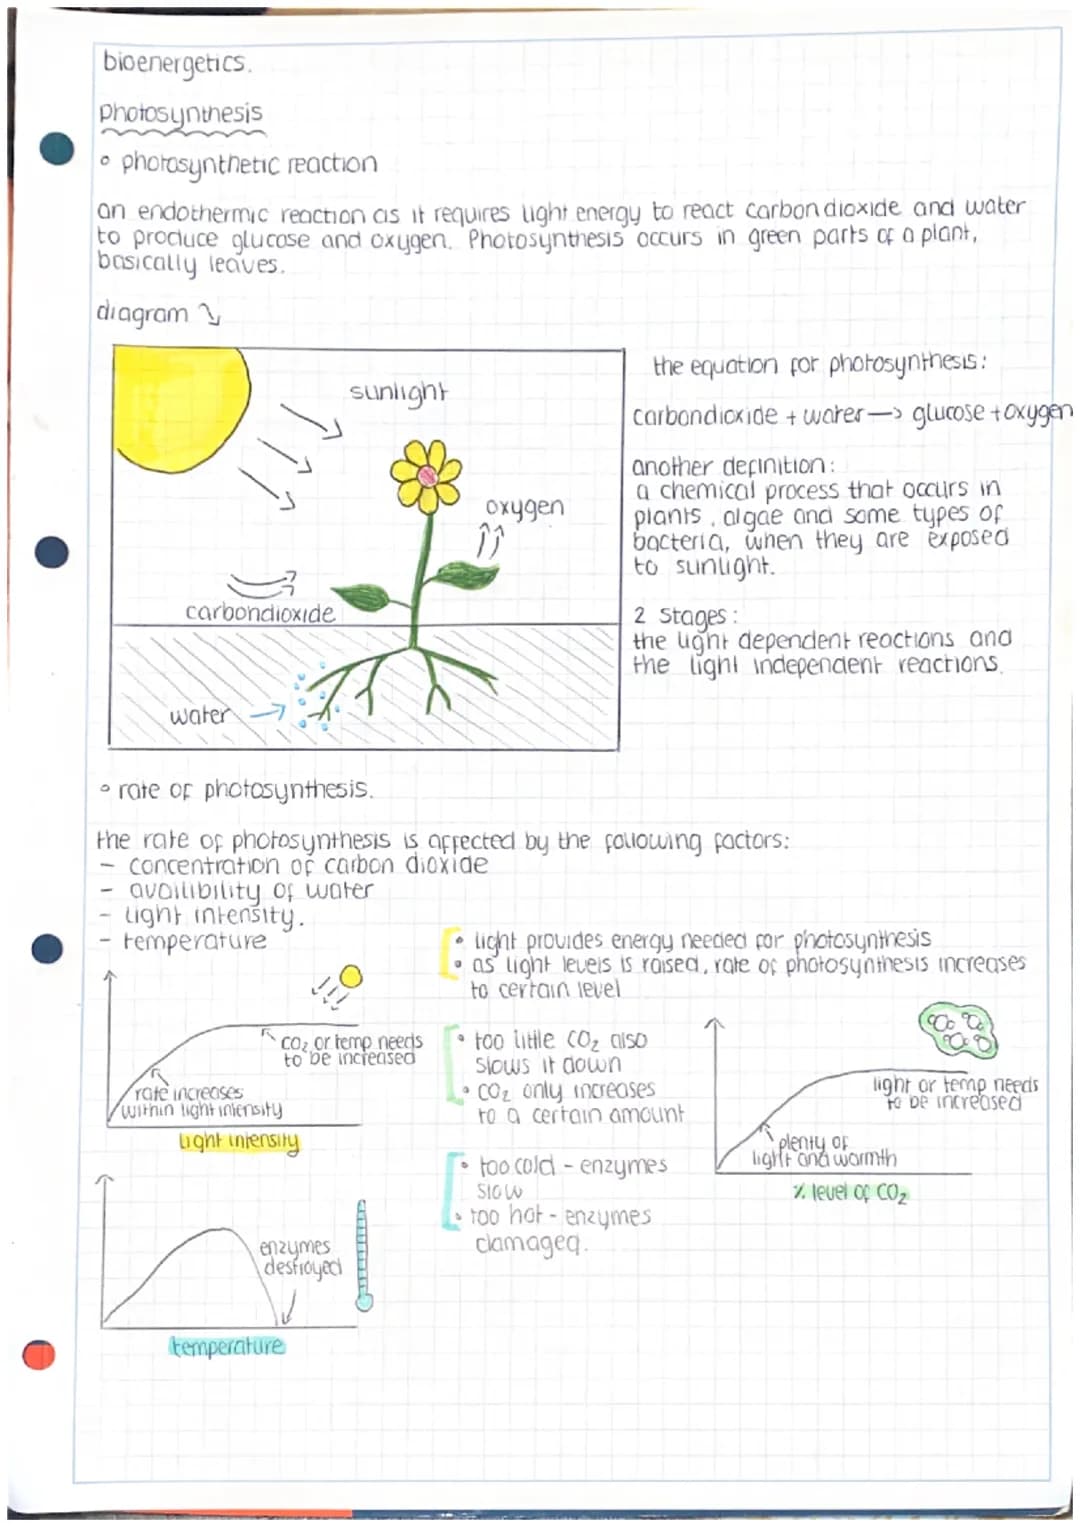 bioenergetics.
Photosynthesis
° photosynthetic reaction
an endothermic reaction as it requires light energy to react carbondioxide and water
to produce glucose and oxygen. Photosynthesis occurs in green parts of a plant,
basically leaves.
diagram ↘
sunlight
oxygen
carbondioxide
water →
the equation for photosynthesis:
carbondioxide + water —> glucose + oxygen
another definition:
a chemical process that occurs in
plants, algae and some types of
bacteria, when they are exposed
to sunlight.
2 stages:
the light dependent reactions and
the light independent reactions.
° rate of photosynthesis.
the rate of photosynthesis is affected by the following factors:
- concentration of carbon dioxide
- availibility of water
- light intensity.
- temperature
• light provides energy needed for photosynthesis
• as light levels is raised, rate of photosynthesis increases
to certain level
CO₂ or temp needs
to be increased
rate increases
within light intensity
light intensity
• too little CO₂ also
slows it down
• CO₂ only increases
to a certain amount
light or temp needs
to be increased
plenty of
light and warmth
% level of CO₂
• too cold - enzymes
slow
• too hot - enzymes
damaged.
enzymes
destroyed
temperature